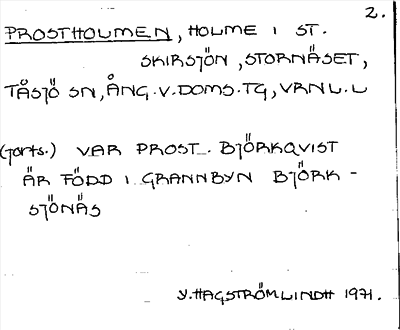 2.
PROSTHOLMEN, HOLME I ST.
SKIRSJÖN, STORNÄSET,
TÅSJÖ SN, ÅNG.V.DOMS.TG, VRNL.L
(forts.) VAR PROST. BJÖRKQVIST
ÄR FÖDD I GRANNBYN BJÖRK-
SJÖNÄS
Y.HAGSTRÖMLINDH 1971.